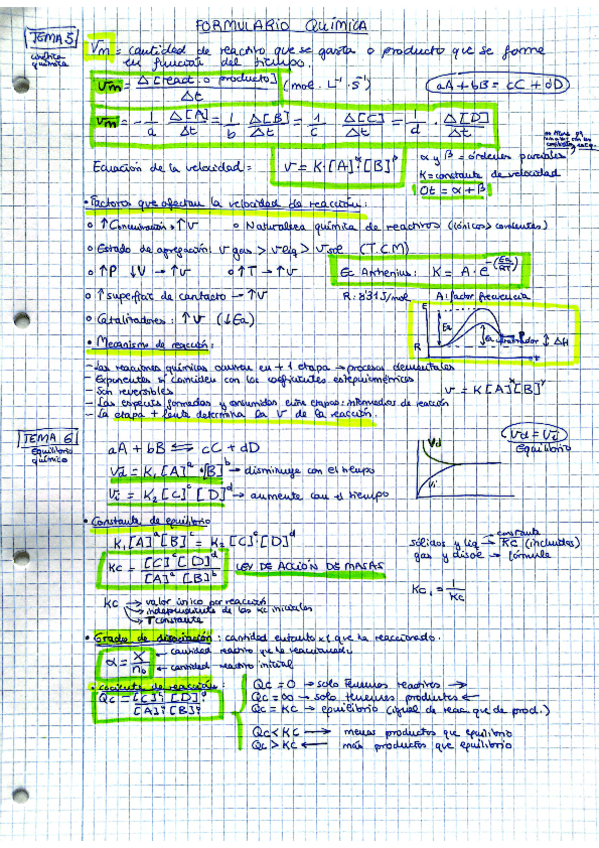 FORMULARIO QUÍMICA
TEMA 5
cinética química
Vm = cantidad de reactivo que se gasta o producto que se forme
en función del tiempo.
Vm = Δ[react. o producto] / Δt (mol · L⁻¹ · s⁻¹)
aA + bB = cC + dD
Vm = - 1/a Δ[A]/Δt = 1/b Δ[B]/Δt = 1/c Δ[C]/Δt = 1/d · Δ[D]/Δt
Ecuación de la velocidad = v = K·[A]ᵅ·[B]ᵝ
α y β = órdenes parciales
K = constante de velocidad
Ot = α + β
• Factores que afectan la velocidad de reacción:
○ ↑ Concentración → ↑v ○ Naturaleza química de reactivos (iónicos > covalentes)
○ Estado de agregación: v gas > v liq > v sol (T.C.M)
○ ↑P ↓V → ↑v ○ ↑T → ↑v
Ec Arrhenius: K = A · e^-(Ea/RT)
○ ↑ superficie de contacto → ↑v
R: 8'31 J/mol A: factor frecuencia
○ Catalizadores: ↑v (↓Ea)
E
Ea
Ea
R
ΔH
• Mecanismo de reacción:
- Las reacciones químicas ocurren en + 1 etapa → procesos elementales
- Exponentes sí coinciden con los coeficientes estequiométricos
v = K[A]ˣ[B]ʸ
- Son reversibles
- Las especies formadas y consumidas entre etapas: intermedios de reacción
- La etapa + lenta determina la v de la reacción.
TEMA 6
Equilibrio químico
aA + bB ⇌ cC + dD
Vd = Vi
Equilibrio
Vd = K₁[A]ᵃ·[B]ᵇ → disminuye con el tiempo
Vd
Vi = K₂[C]ᶜ[D]ᵈ → aumenta con el tiempo
Vi
• Constante de equilibrio
K₁[A]ᵃ[B]ᶜ = K₂[C]ᶜ[D]ᵈ
Kc = [C]ᶜ[D]ᵈ / [A]ᵃ[B]ᵇ
LEY DE ACCIÓN DE MASAS
constante
sólidos y líq → Kc (incluidas)
gas y disoc → fórmula
Kc₁ = 1/Kc
Kc → valor único por reacción
→ independiente de las iniciales
→ T constante
• Grado de disociación: cantidad en tanto x1 que ha reaccionado.
α = x/n₀ ← cantidad reactivo que ha reaccionado
← cantidad reactivo inicial
• cociente de reacción:
Qc = [C]ᶜ[D]ᵈ / [A]ᵃ[B]ᵇ
Qc = 0 → solo tenemos reactivos →
Qc = ∞ → solo tenemos productos ←
Qc = Kc → equilibrio (igual de reac. que de prod.)
Qc < Kc → menos productos que equilibrio
Qc > Kc ← más productos que equilibrio